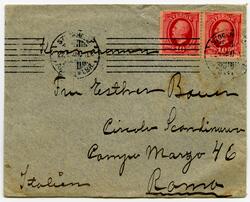 SVERIGE
10
Fru Esther Bauer
Circolo Scandinavo
Campo Marzo 46
Roma
Italien